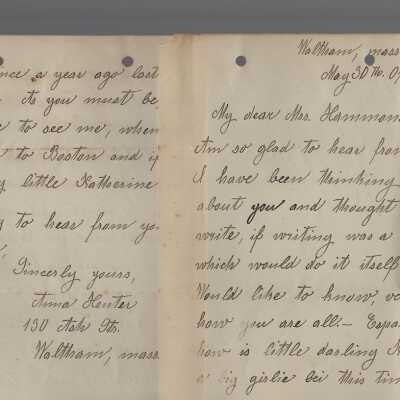 nce a year ago last
As you must be
e to see me, when
to Boston and if
little Katherine
to hear from yo
Sincerly yours,
Anna Hester
130 Ash Str.
Waltham, mass
Waltham, mass
May 30th. 0
My dear Mrs. Hammon
Am so glad to hear from
I have been thinking
about you and thought
write, if writing was a
which would do it itself
Would like to know,
how you are all:- Espa
how is little darling
a big girlie bei this tim